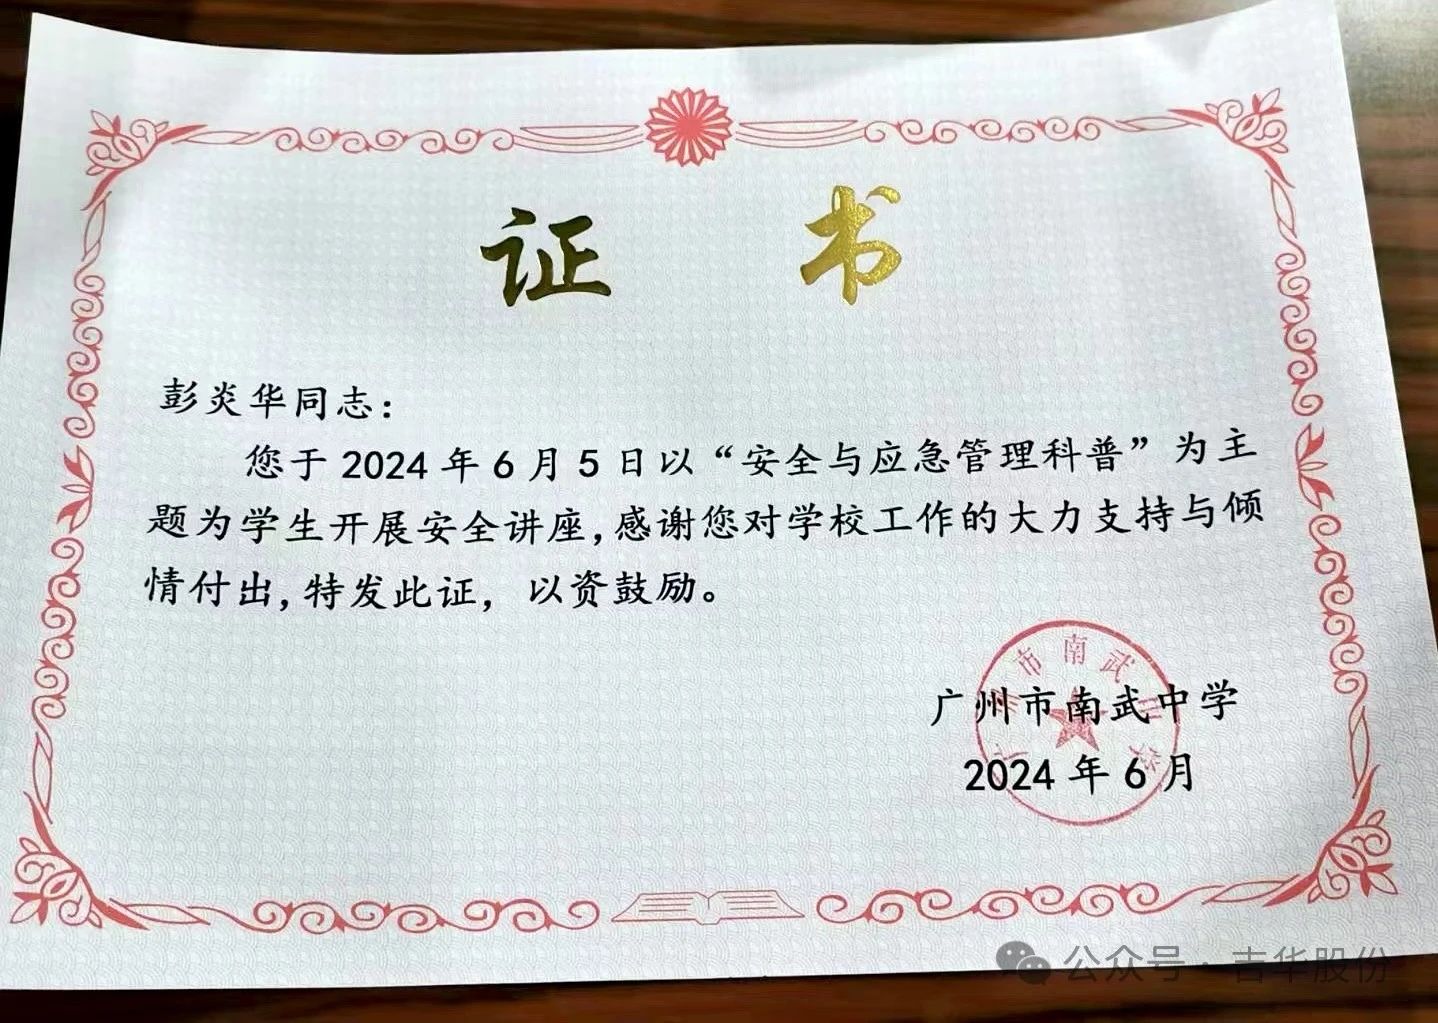 证 书
彭炎华同志：
您于 2024 年 6 月 5 日以“安全与应急管理科普”为主
题为学生开展安全讲座,感谢您对学校工作的大力支持与倾
情付出,特发此证, 以资鼓励。
市南武
广州市南武中学
2024 年 6 月
公众号 · 吉华股份